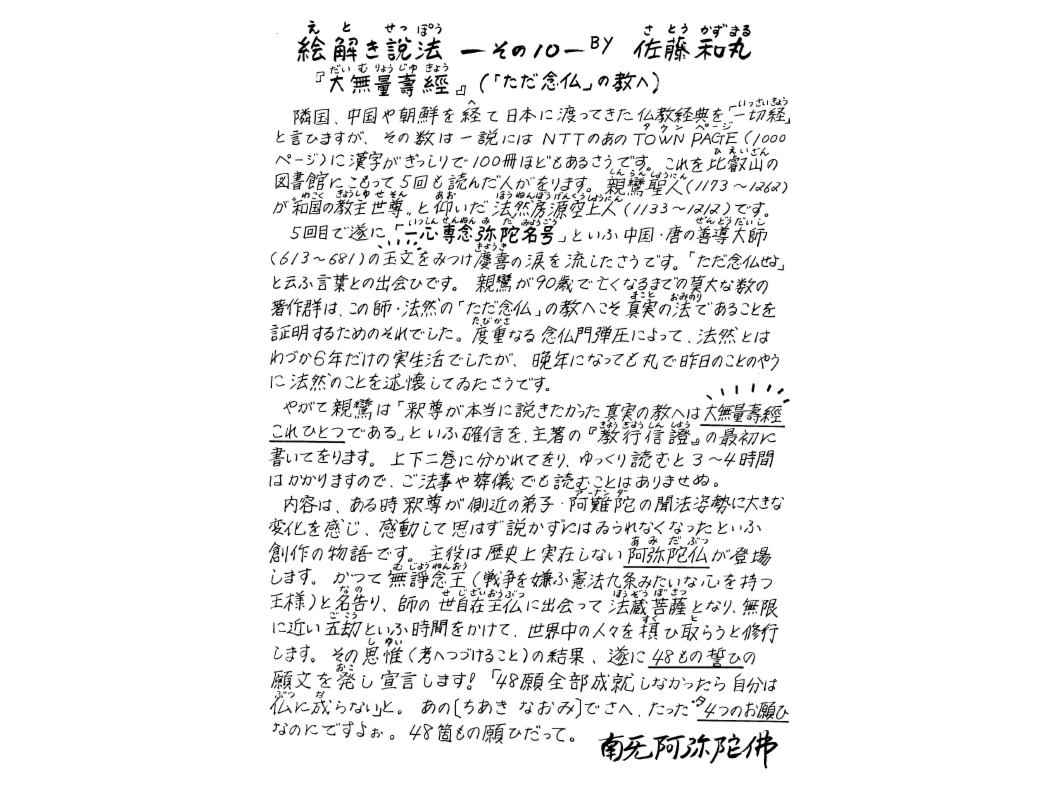 絵解き説法 ーその10ー BY 佐藤和丸
『大無量壽經』(「ただ念仏」の教へ)
隣国、中国や朝鮮を経て日本に渡ってきた仏教経典を「一切経」
と言ひますが、その数は一説にはNTTのあのTOWN PAGE(1000
ページ)に漢字がぎっしりで100冊ほどもあるさうです。これを比叡山の
図書館にこもって5回も読んだ人がをります。親鸞聖人(1173〜1262)
が"和国の教主世尊"と仰いだ法然房源空上人(1133〜1212)です。
5回目で遂に「一心専念弥陀名号」といふ中国・唐の善導大師
(613〜681)の玉文をみつけ慶喜の涙を流したさうです。「ただ念仏せよ」
と云ふ言葉との出会ひです。親鸞が90歳で亡くなるまでの莫大な数の
著作群は、この師・法然の「ただ念仏」の教へこそ真実の法であることを
証明するためのそれでした。度重なる念仏門弾圧によって、法然とは
わづか6年だけの実生活でしたが、晩年になっても丸で昨日のことのやう
に法然のことを述懐してゐたさうです。
やがて親鸞は「釈尊が本当に説きたかった真実の教へは大無量壽經
これひとつである」といふ確信を、主著の『教行信證』の最初に
書いてをります。上下二巻に分かれてをり、ゆっくり読むと3〜4時間
はかかりますので、ご法事や葬儀でも読むことはありませぬ。
内容は、ある時釈尊が側近の弟子・阿難陀の聞法姿勢に大きな
変化を感じ、感動して思はず説かずにはゐられなくなったといふ
創作の物語です。主役は歴史上実在しない阿弥陀仏が登場
します。かつて無諍念王(戦争を嫌ふ憲法九条みたいな心を持つ
王様)と名告り、師の世自在王仏に出会って法蔵菩薩となり、無限
に近い五劫といふ時間をかけて、世界中の人々を摂ひ取らうと修行
します。その思惟(考へつづけること)の結果、遂に48もの誓ひの
願文を発し宣言します!「48願全部成就しなかったら自分は
仏に成らない」と。あの〔ちあきなおみ〕でさへ、たった4つのお願ひ
なのにですよぉ。48箇もの願ひだって。
南无阿弥陀佛